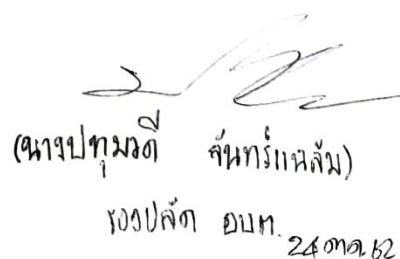 (นางปทุมวดี จันทร์แนล้ม)
รองปลัด อบต.
24 ตค. 62